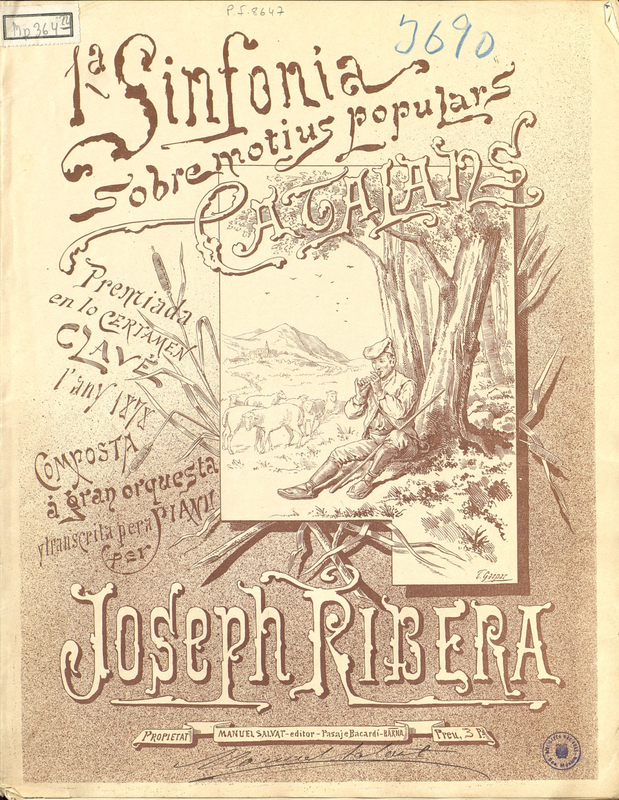 P.f. 8647
Mp 364
5690
1ª Sinfonia
sobre motius populars
CATALANS
Premiada
en lo CERTAMEN
CLAVÉ
l'any 1878
COMPOSTA
á gran orquesta
y transcrita pera PIANO
per
JOSEPH RIBERA
PROPIETAT
MANUEL SALVAT-editor-Pasaje Bacardí-BARNA
Preu, 3 Ps